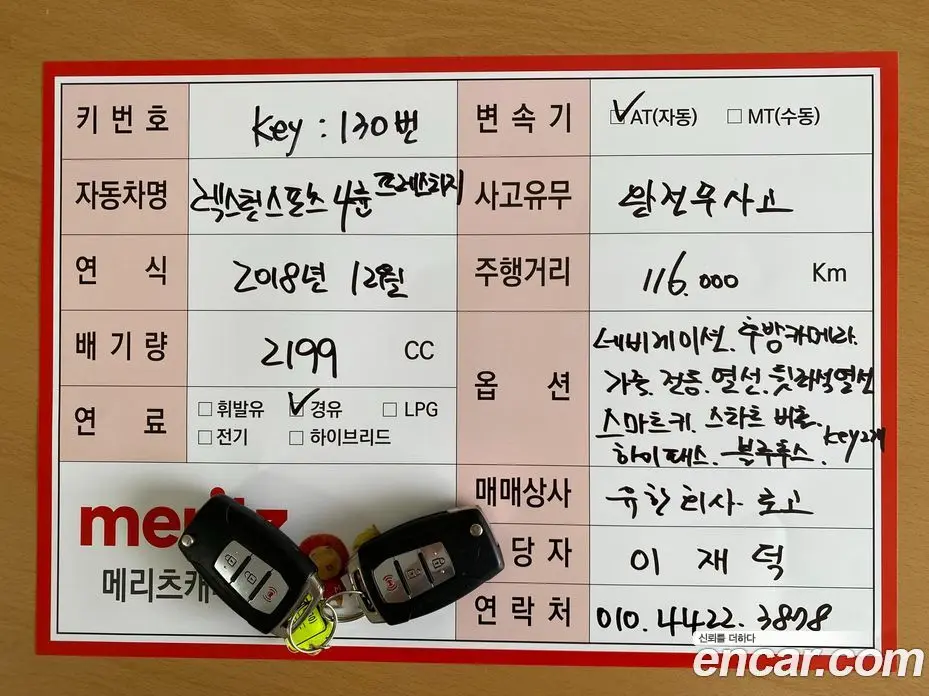 키 번 호 Key : 130번 변 속 기 ☑AT(자동) □ MT(수동)
자동차명 렉스턴스포츠 4륜 프레스티지 사고유무 완전무사고
연 식 2018년 12월 주행거리 116.000 Km
배 기 량 2199 CC
옵 션 네비게이션. 후방카메라.
가죽. 전동. 열선. 뒷좌석열선
스마트키. 스타트 버튼. Key 2개
하이패스. 블루투스.
연 료 □ 휘발유 ☑ 경유 □ LPG
□ 전기 □ 하이브리드
매매상사 유한회사 로고
당 자 이 재 덕
연 락 처 010. 4422. 3878
meritz
메리츠캐
신뢰를 더하다
encar.com